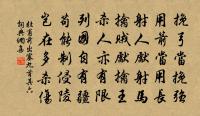 挽弓當挽強
用箭當用長
射人先射馬
擒賊先擒王
殺人亦有限
列國自有疆
苟能制侵陵
豈在多殺傷
杜甫前出塞九首其六
詞典網集